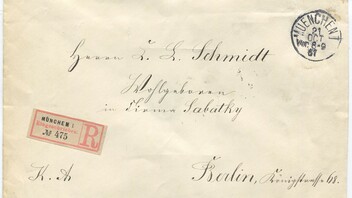 MUENCHEN I
21
OCT
Vor. 8-9
Herrn L. L. Schmidt
Wohlgeboren
in Firma Sabatky
MÜNCHEN I
R
№ 475
K. A.
Berlin, Königstrasse 68.